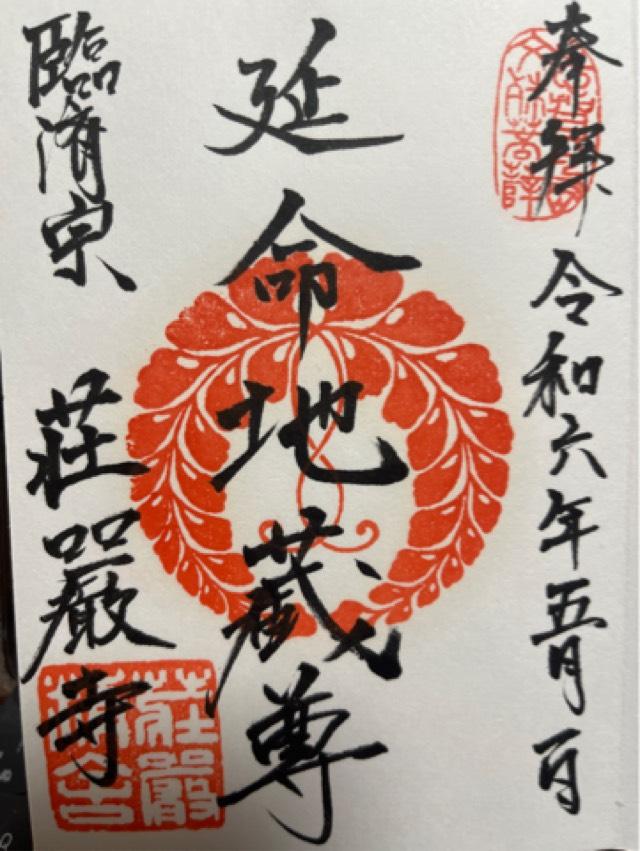 奉拝 令和六年五月一日
延命地蔵尊
臨済宗 荘嚴寺